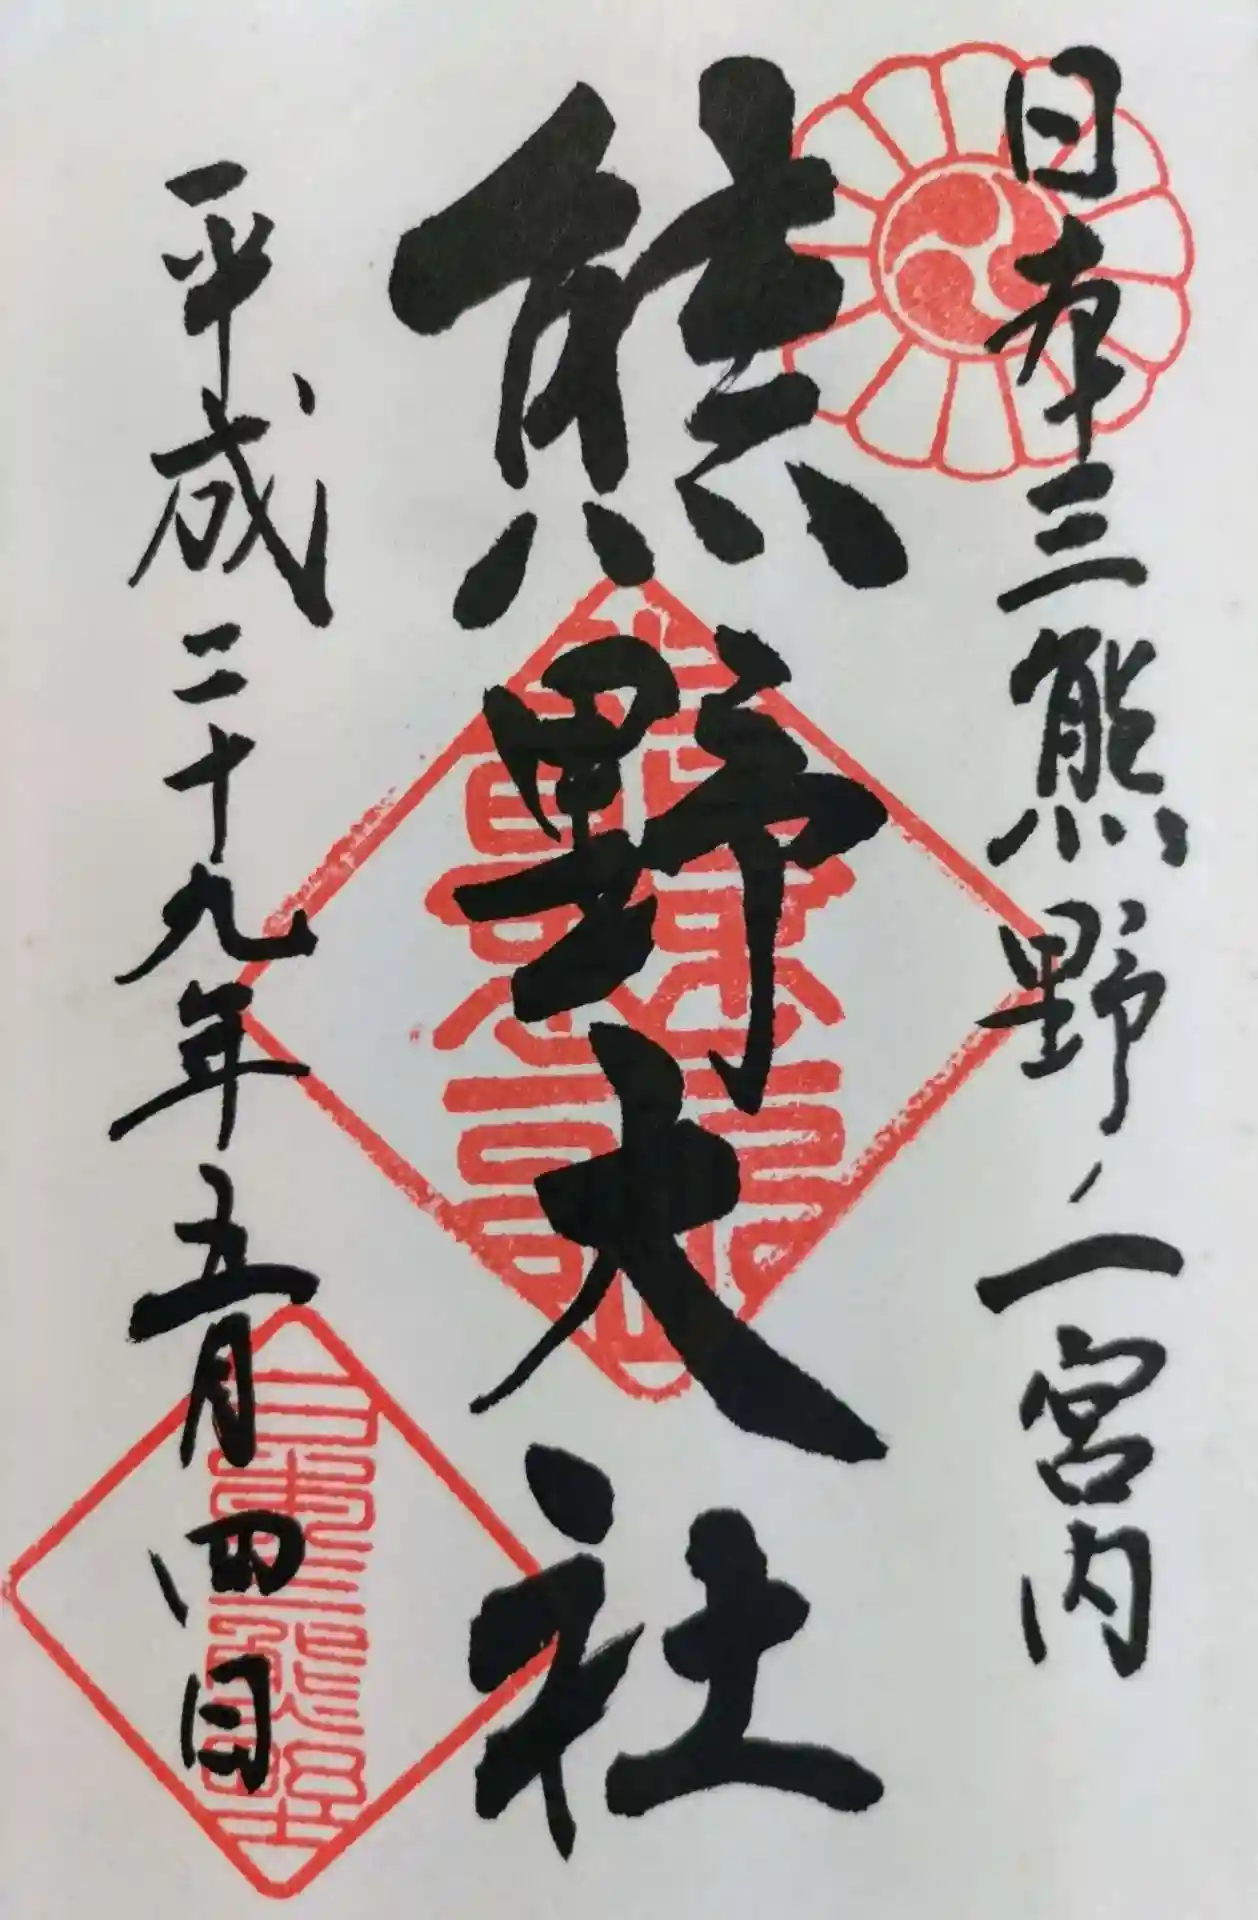 日本三熊野ノ一宮内
熊野大社
平成二十九年五月四日